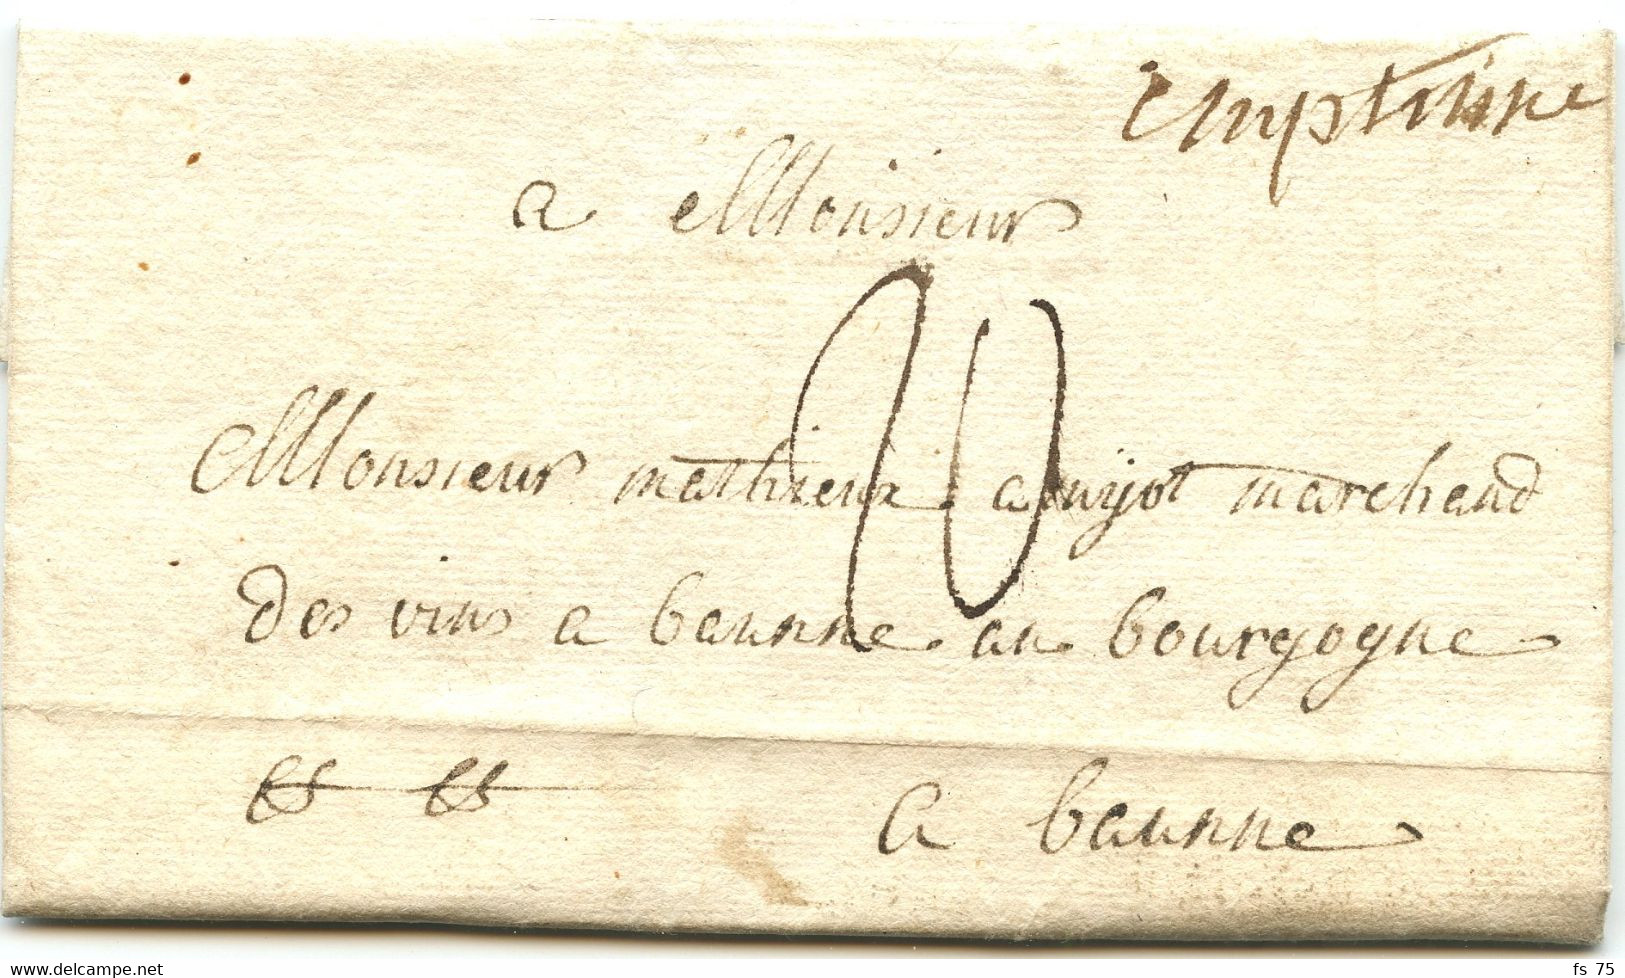 emptinne
a Monsieur
20
Monsieur mathieux amijot marchand
des vins a baunne an bourgogne
a baunne
www.delcampe.net
fs 75